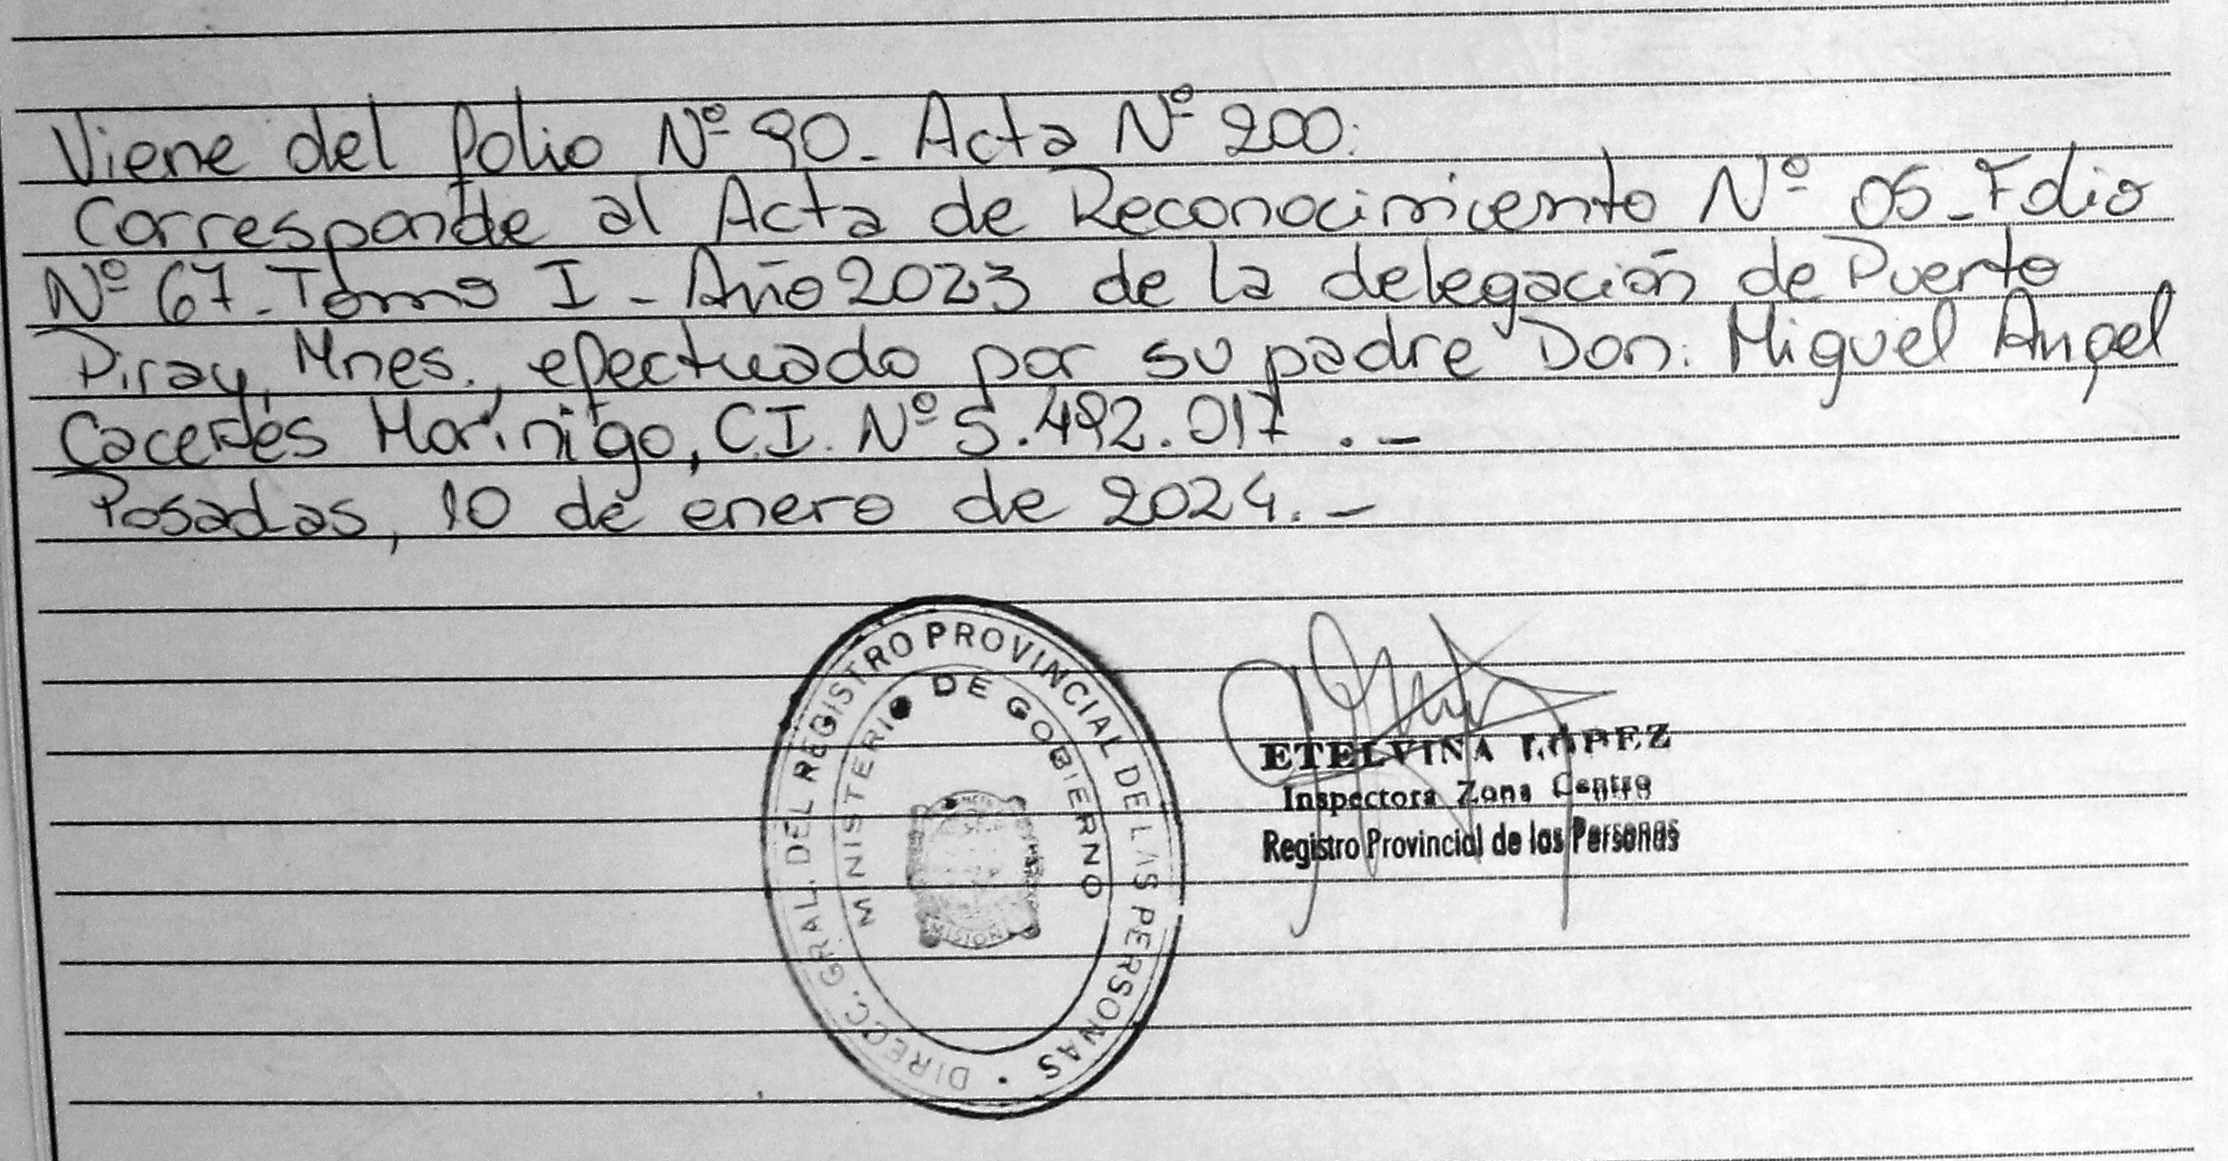 Viene del folio Nº 90. Acta Nº 200.
Corresponde al Acta de Reconocimiento Nº 05. Folio
Nº 67. Tomo I - Año 2023 de la delegación de Puerto
Piray, Mnes., efectuado por su padre Don: Miguel Angel
Caceres Morinigo, C.I. Nº 5.492.017 . -
Posadas, 10 de enero de 2024. -
DIRECC. GRAL. DEL REGISTRO PROVINCIAL DE LAS PERSONAS
MINISTERIO DE GOBIERNO
MISIONES
ETELVINA LOPEZ
Inspectora Zona Centro
Registro Provincial de las Personas